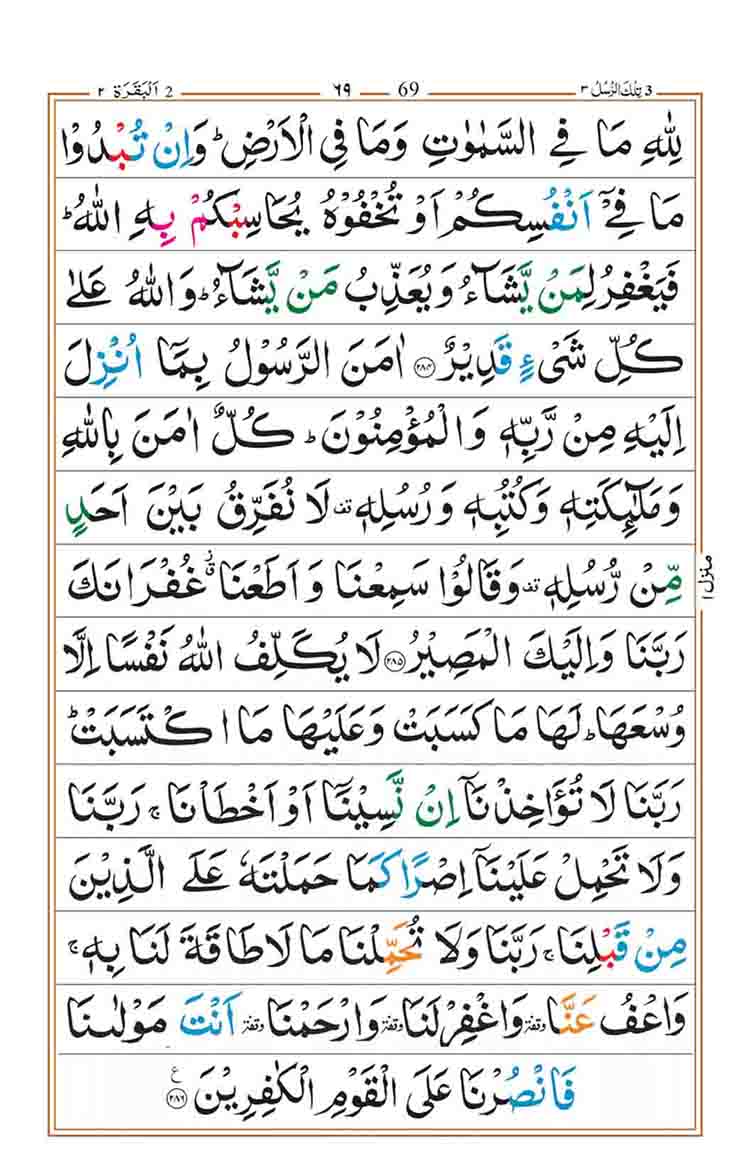 3 تِلْكَ الرُّسُلُ ٣ 69 ٦٩ 2 اَلْبَقَرَة ٢
لِلّٰهِ مَا فِى السَّمٰوٰتِ وَمَا فِى الْاَرْضِ ؕ وَاِنْ تُبْدُوْا
مَا فِىْۤ اَنْفُسِكُمْ اَوْ تُخْفُوْهُ يُحَاسِبْكُمْ بِهِ اللّٰهُ ؕ
فَيَغْفِرُ لِمَنْ يَّشَآءُ وَيُعَذِّبُ مَنْ يَّشَآءُ ؕ وَاللّٰهُ عَلٰى
كُلِّ شَىْءٍ قَدِيْرٌ ﴿۲۸۴﴾ اٰمَنَ الرَّسُوْلُ بِمَاۤ اُنْزِلَ
اِلَيْهِ مِنْ رَّبِّهٖ وَالْمُؤْمِنُوْنَ ؕ كُلٌّ اٰمَنَ بِاللّٰهِ
وَمَلٰٓئِكَتِهٖ وَكُتُبِهٖ وَرُسُلِهٖ قف لَا نُفَرِّقُ بَيْنَ اَحَدٍ
مِّنْ رُّسُلِهٖ قف وَقَالُوْا سَمِعْنَا وَاَطَعْنَا ق ز غُفْرَانَكَ
رَبَّنَا وَاِلَيْكَ الْمَصِيْرُ ﴿۲۸۵﴾ لَا يُكَلِّفُ اللّٰهُ نَفْسًا اِلَّا
وُسْعَهَا ؕ لَهَا مَا كَسَبَتْ وَعَلَيْهَا مَا اكْتَسَبَتْ ؕ
رَبَّنَا لَا تُؤَاخِذْنَاۤ اِنْ نَّسِيْنَاۤ اَوْ اَخْطَاْنَا ۚ رَبَّنَا
وَلَا تَحْمِلْ عَلَيْنَاۤ اِصْرًا كَمَا حَمَلْتَهٗ عَلَى الَّذِيْنَ
مِنْ قَبْلِنَا ۚ رَبَّنَا وَلَا تُحَمِّلْنَا مَا لَا طَاقَةَ لَنَا بِهٖ ۚ
وَاعْفُ عَنَّا وقفة وَاغْفِرْ لَنَا وقفة وَارْحَمْنَا وقفة اَنْتَ مَوْلٰىنَا
فَانْصُرْنَا عَلَى الْقَوْمِ الْكٰفِرِيْنَ ﴿۲۸۶﴾ ع
منزل ١